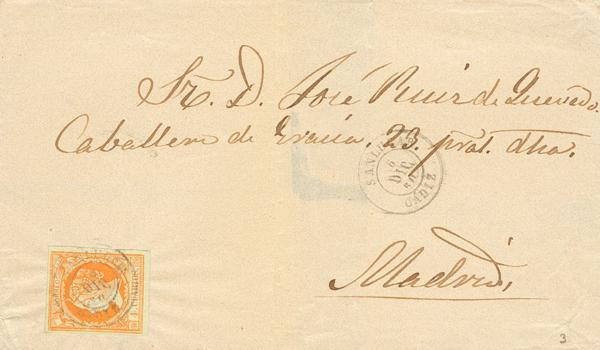 Sr. D. José Ruiz de Quevedo.
Caballero de Gracia, 23. pral. dha.
6
DIC
CADIZ
Madrid,
4 CUARTOS
3